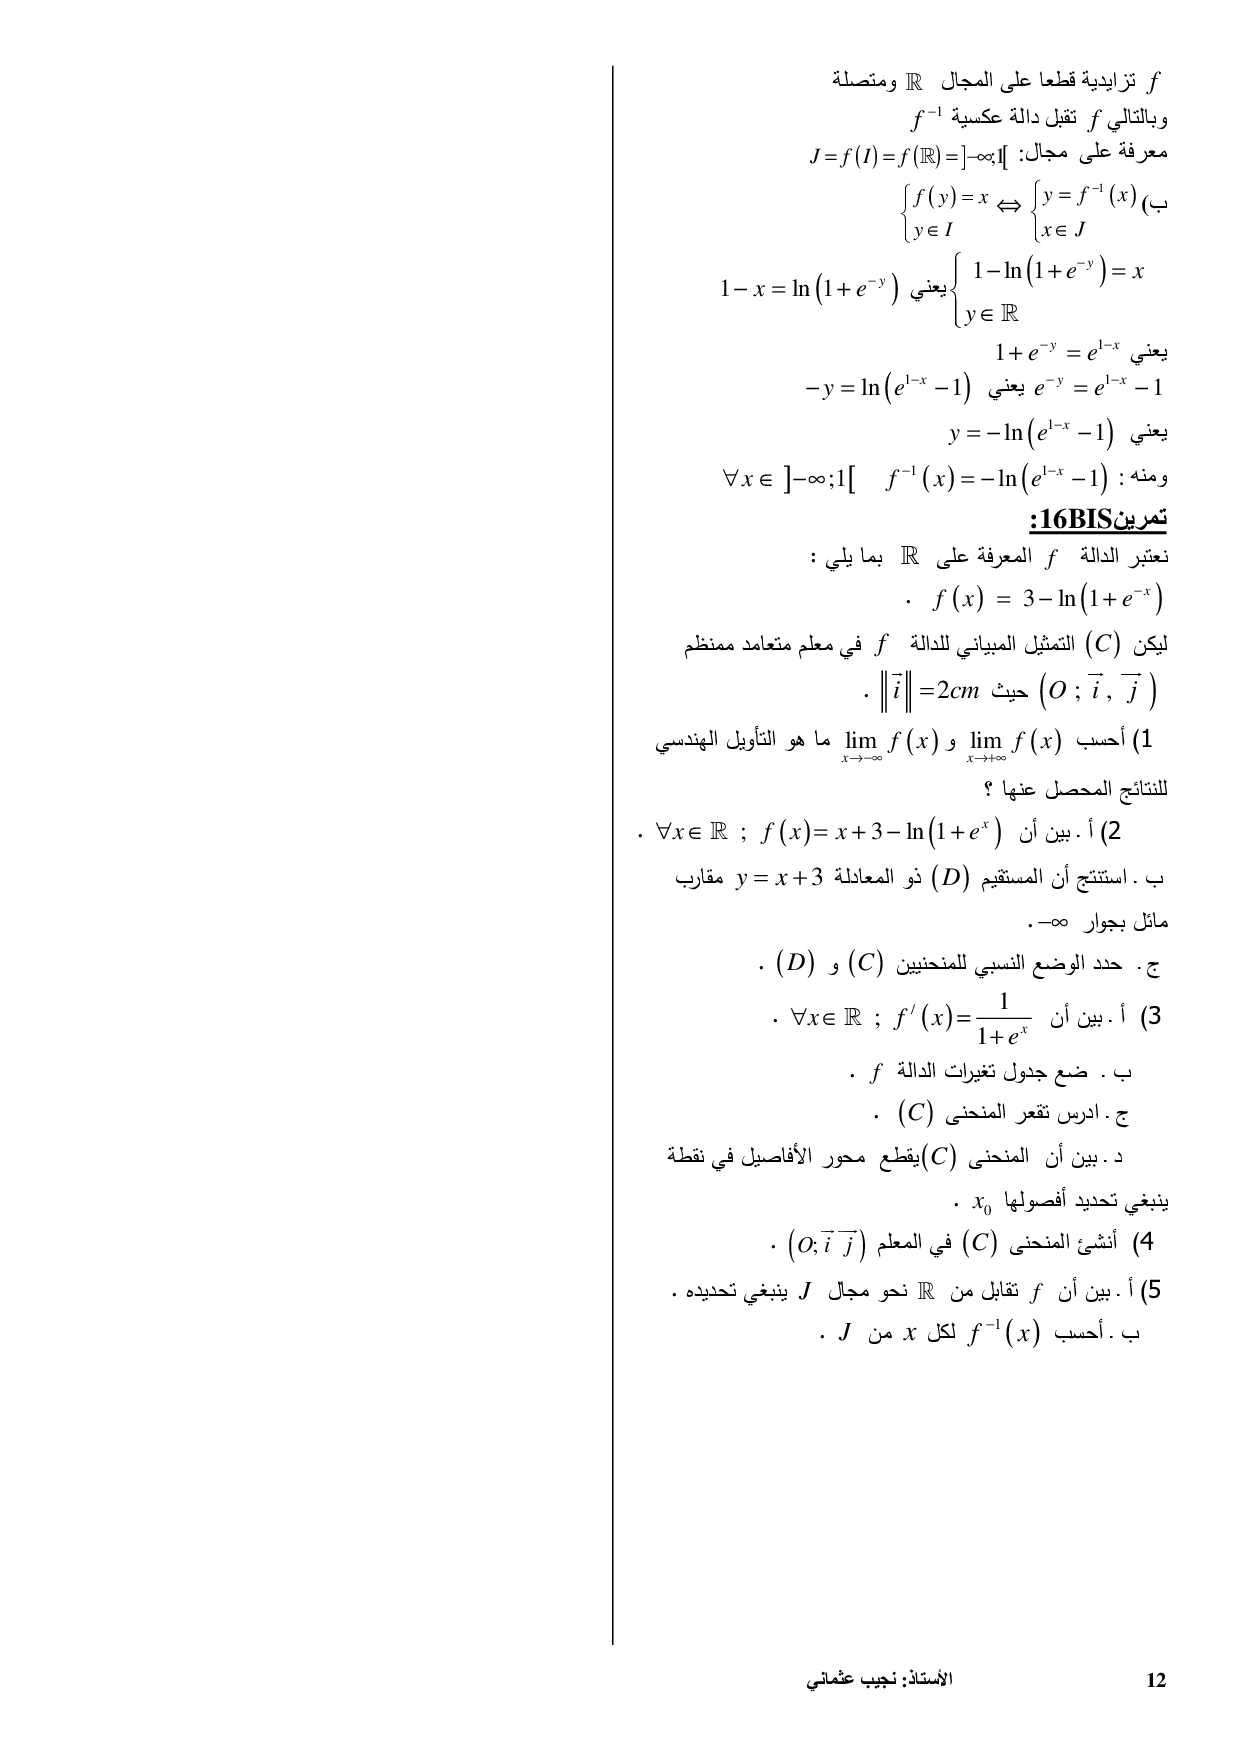 f تزايدية قطعا على المجال ℝ ومتصلة
وبالتالي f تقبل دالة عكسية f⁻¹
معرفة على مجال: J = f(I) = f(ℝ) = ]−∞;1[
ب) { y = f⁻¹(x) ; x ∈ J ⇔ { f(y) = x ; y ∈ I
{ 1 − ln(1 + e^{−y}) = x ; y ∈ ℝ يعني 1 − x = ln(1 + e^{−y})
يعني 1 + e^{−y} = e^{1−x}
e^{−y} = e^{1−x} − 1 يعني −y = ln(e^{1−x} − 1)
يعني y = −ln(e^{1−x} − 1)
ومنه : f⁻¹(x) = −ln(e^{1−x} − 1) ∀x ∈ ]−∞;1[
تمرين16BIS:
نعتبر الدالة f المعرفة على ℝ بما يلي :
f(x) = 3 − ln(1 + e^{−x}) .
ليكن (C) التمثيل المبياني للدالة f في معلم متعامد ممنظم
(O ; i⃗ , j⃗) حيث ‖i⃗‖ = 2cm .
1) أحسب lim_{x→+∞} f(x) و lim_{x→−∞} f(x) ما هو التأويل الهندسي
للنتائج المحصل عنها ؟
2) أ . بين أن ∀x ∈ ℝ ; f(x) = x + 3 − ln(1 + e^x) .
ب . استنتج أن المستقيم (D) ذو المعادلة y = x + 3 مقارب
مائل بجوار −∞ .
ج . حدد الوضع النسبي للمنحنيين (C) و (D) .
3) أ . بين أن ∀x ∈ ℝ ; f′(x) = 1/(1 + e^x) .
ب . ضع جدول تغيرات الدالة f .
ج . ادرس تقعر المنحنى (C) .
د . بين أن المنحنى (C) يقطع محور الأفاصيل في نقطة
ينبغي تحديد أفصولها x₀ .
4) أنشئ المنحنى (C) في المعلم (O; i⃗ j⃗) .
5) أ . بين أن f تقابل من ℝ نحو مجال J ينبغي تحديده .
ب . أحسب f⁻¹(x) لكل x من J .
12 الأستاذ: نجيب عثماني